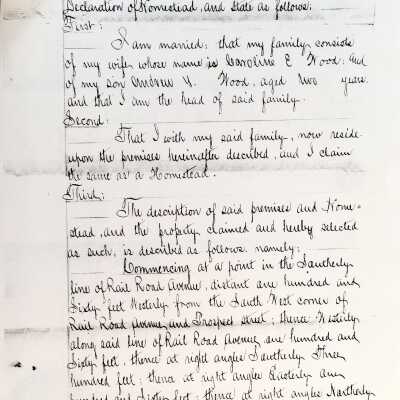 Declaration of Homestead, and State as follows:
First:
I am married: that my family consists
of my wife whose name is Caroline E Wood: and
of my son Andrew V. Wood, aged two years
and that I am the head of said family.
Second:
That I with my said family, now reside
upon the premises hereinafter described, and I claim
the same as a Homestead.
Third:
The description of said premises and Home-
stead, and the property claimed and hereby selected
as such, is described as follows. namely:
Commencing at a point in the Southerly
line of Rail Road Avenue, distant one hundred and
Sixty feet Westerly from the South West corner of
Rail Road Avenue and Prospect street; thence Westerly
along said line of Rail Road Avenue one hundred and
Sixty feet, thence at right angles Southerly Three
hundred feet; thence at right angles Easterly one
hundred and Sixty feet; thence at right angles Northerly